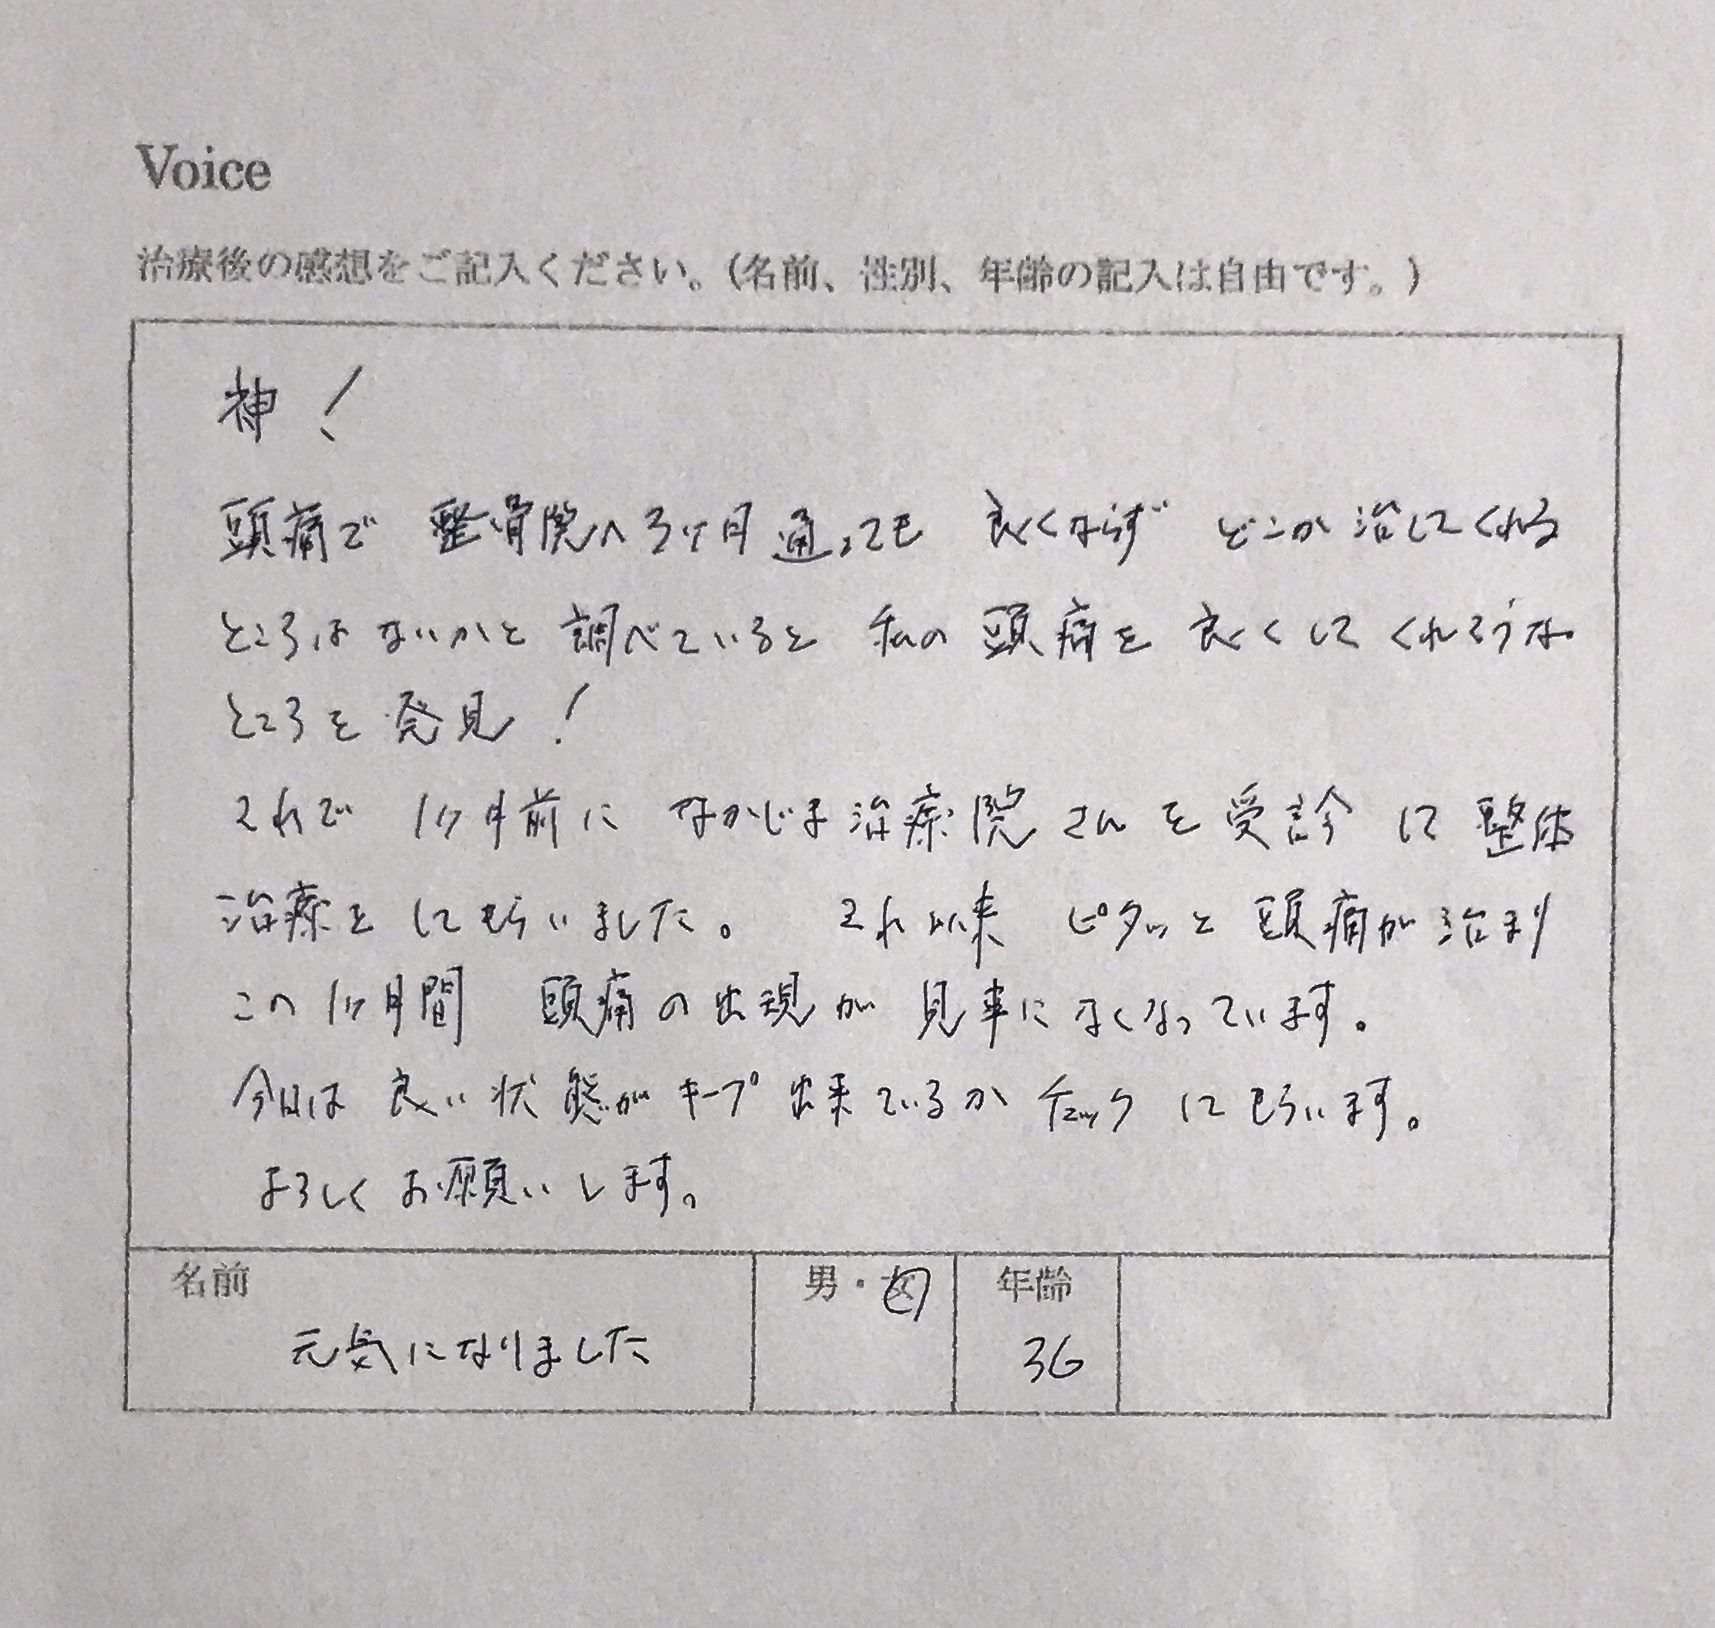 Voice
治療後の感想をご記入ください。(名前、性別、年齢の記入は自由です。)
神!
頭痛で 整骨院へ3ヶ月通っても 良くならず どこか治してくれる
ところはないかと 調べていると 私の頭痛を良くしてくれそうな
ところを発見!
それで 1ヶ月前に なかじま治療院さんを受診して整体
治療をしてもらいました。 それ以来 ピタッと頭痛が治まり
この1ヶ月間 頭痛の出現が見事になくなっています。
今日は良い状態がキープ出来ているかチェックしてもらいます。
よろしくお願いします。
名前 男・女 年齢
元気になりました 36